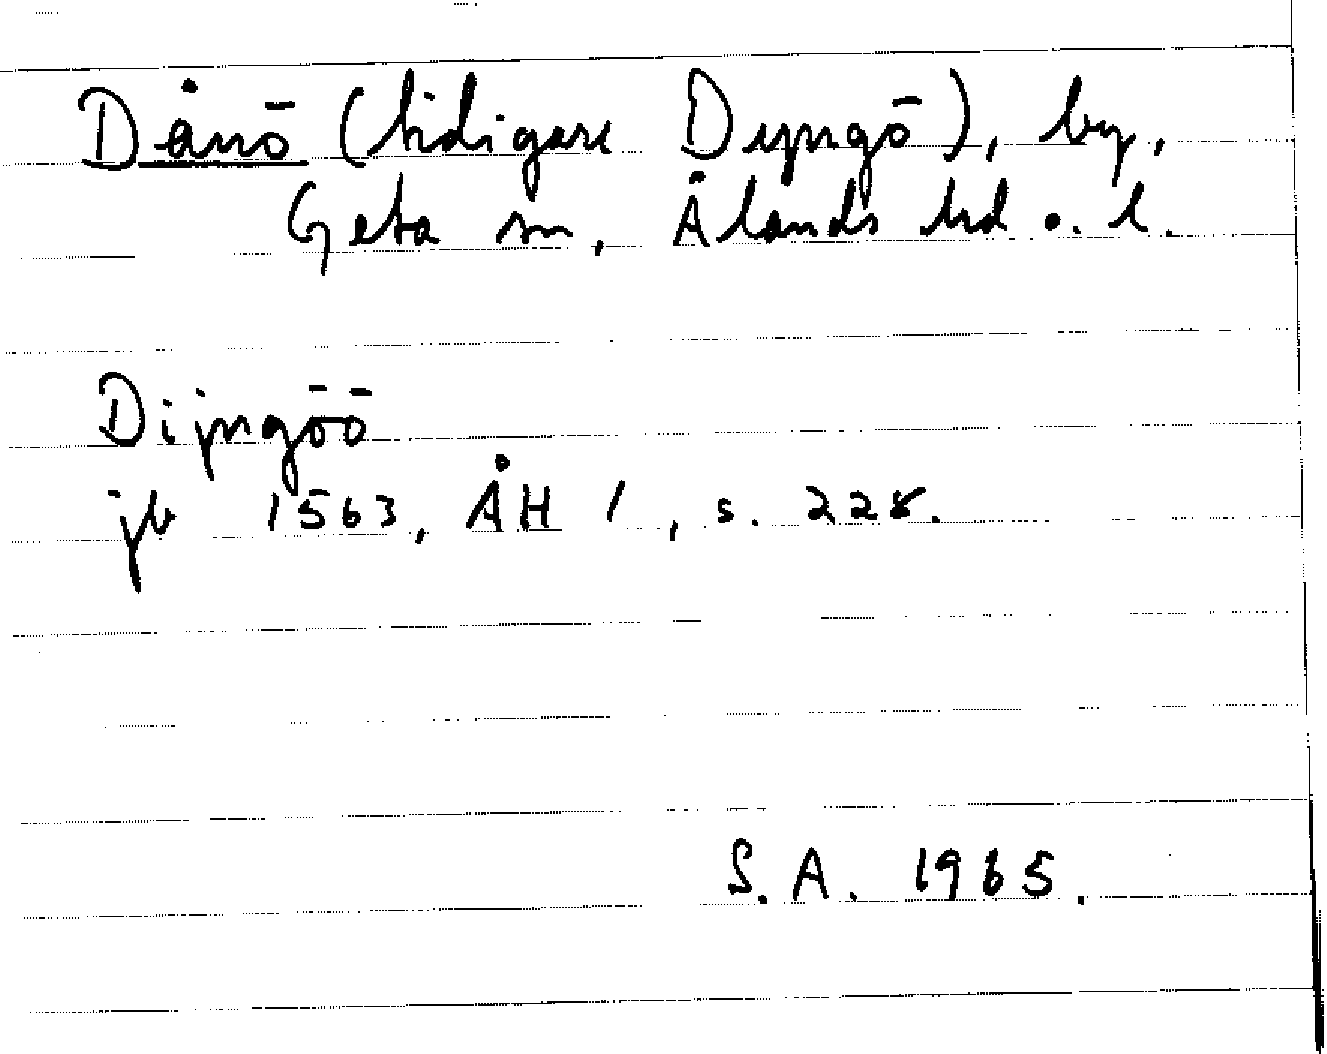 Dånö (tidigare Dyngö), by,
Geta sn, Ålands hd o. l.
Dijngöö
jb 1563, ÅH 1, s. 228.
S.A. 1965.